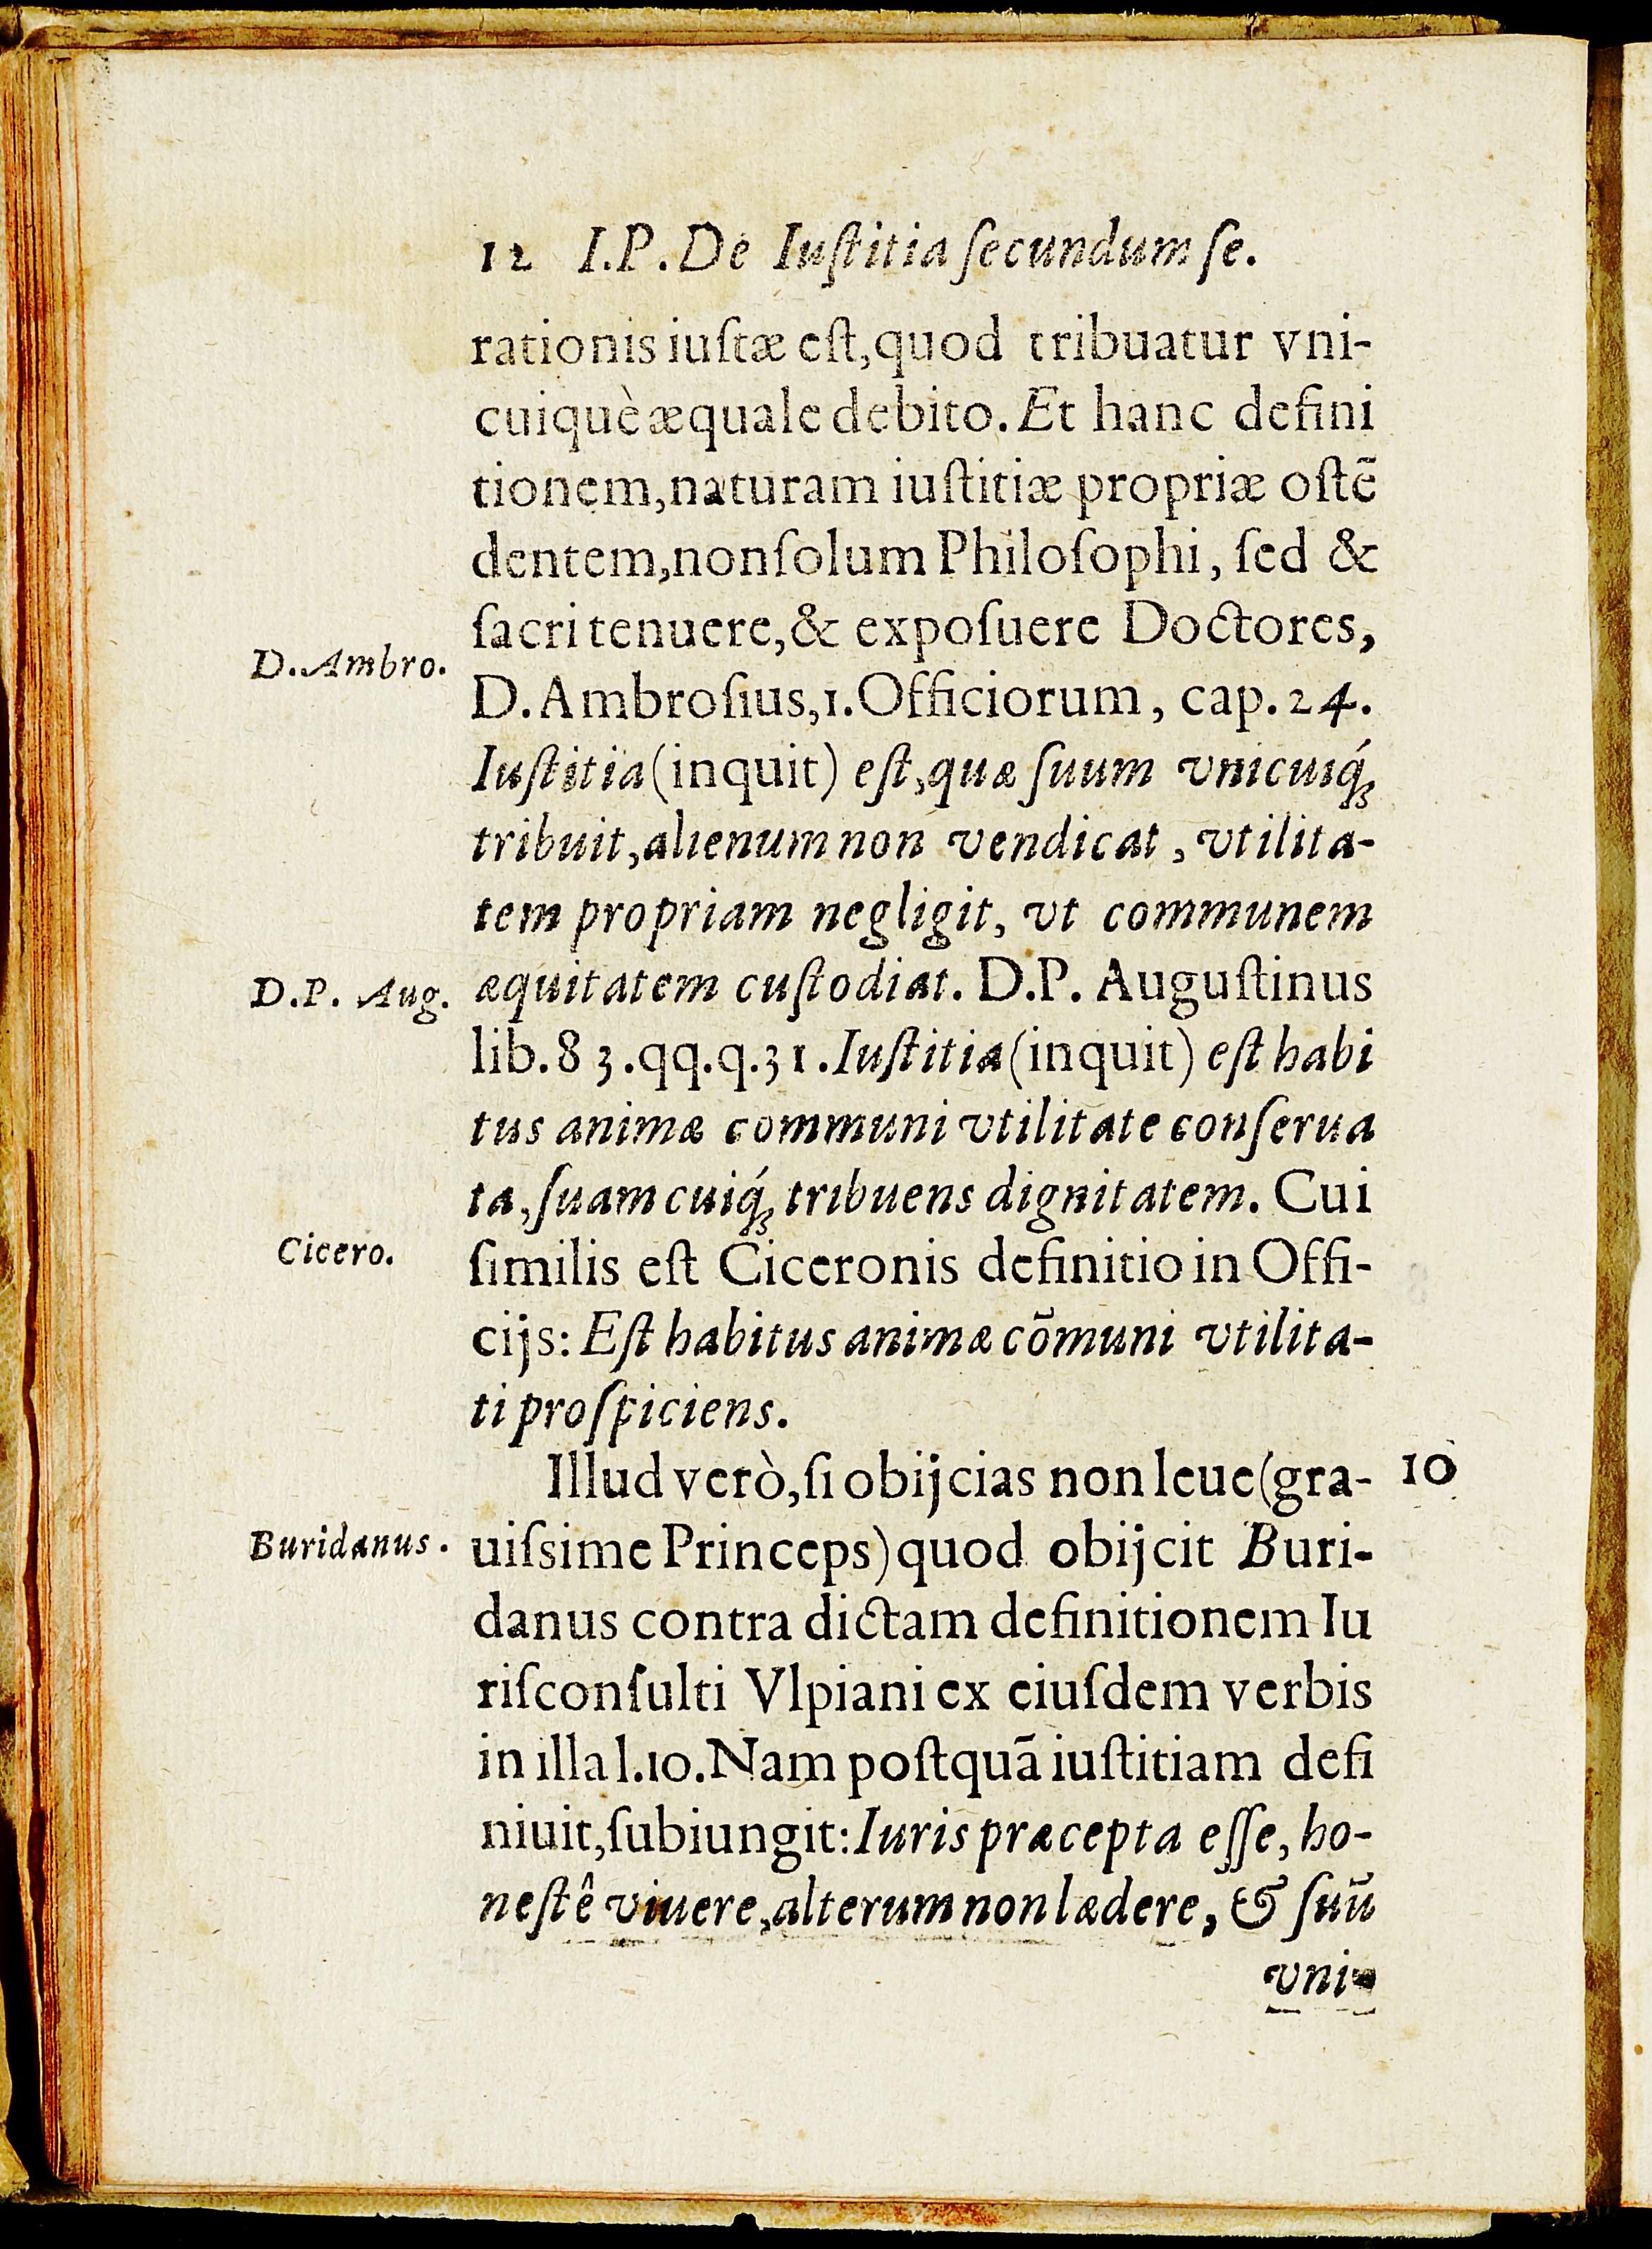 12 I.P. De Iuſtitia ſecundum ſe.
rationis iuſtæ eſt, quod tribuatur vni-
cuiquè æquale debito. Et hanc defini
tionem, naturam iuſtitiæ propriæ oſtẽ
dentem, non ſolum Philoſophi, ſed &
ſacri tenuere, & expoſuere Doctores,
D. Ambro.
D. Ambroſius, 1. Officiorum, cap. 24.
Iuſtitia (inquit) eſt, quæ ſuum vnicuiq́;
tribuit, alienum non vendicat, vtilita-
tem propriam negligit, vt communem
D.P. Aug.
æquitatem cuſtodiat. D.P. Auguſtinus
lib. 83. qq. q. 31. Iuſtitia (inquit) eſt habi
tus animæ communi vtilitate conſerua
ta, ſuam cuiq́; tribuens dignitatem. Cui
Cicero.
ſimilis eſt Ciceronis definitio in Offi-
cijs: Eſt habitus animæ cõmuni vtilita-
ti proſpiciens.
Illud verò, ſi obijcias non leue (gra-
10
Buridanus.
uiſsime Princeps) quod obijcit Buri-
danus contra dictam definitionem Iu
riſconſulti Vlpiani ex eiuſdem verbis
in illa l. 10. Nam poſtquã iuſtitiam defi
niuit, ſubiungit: Iuris præcepta eſſe, ho-
neſtê viuere, alterum non lædere, & ſuũ
vni-